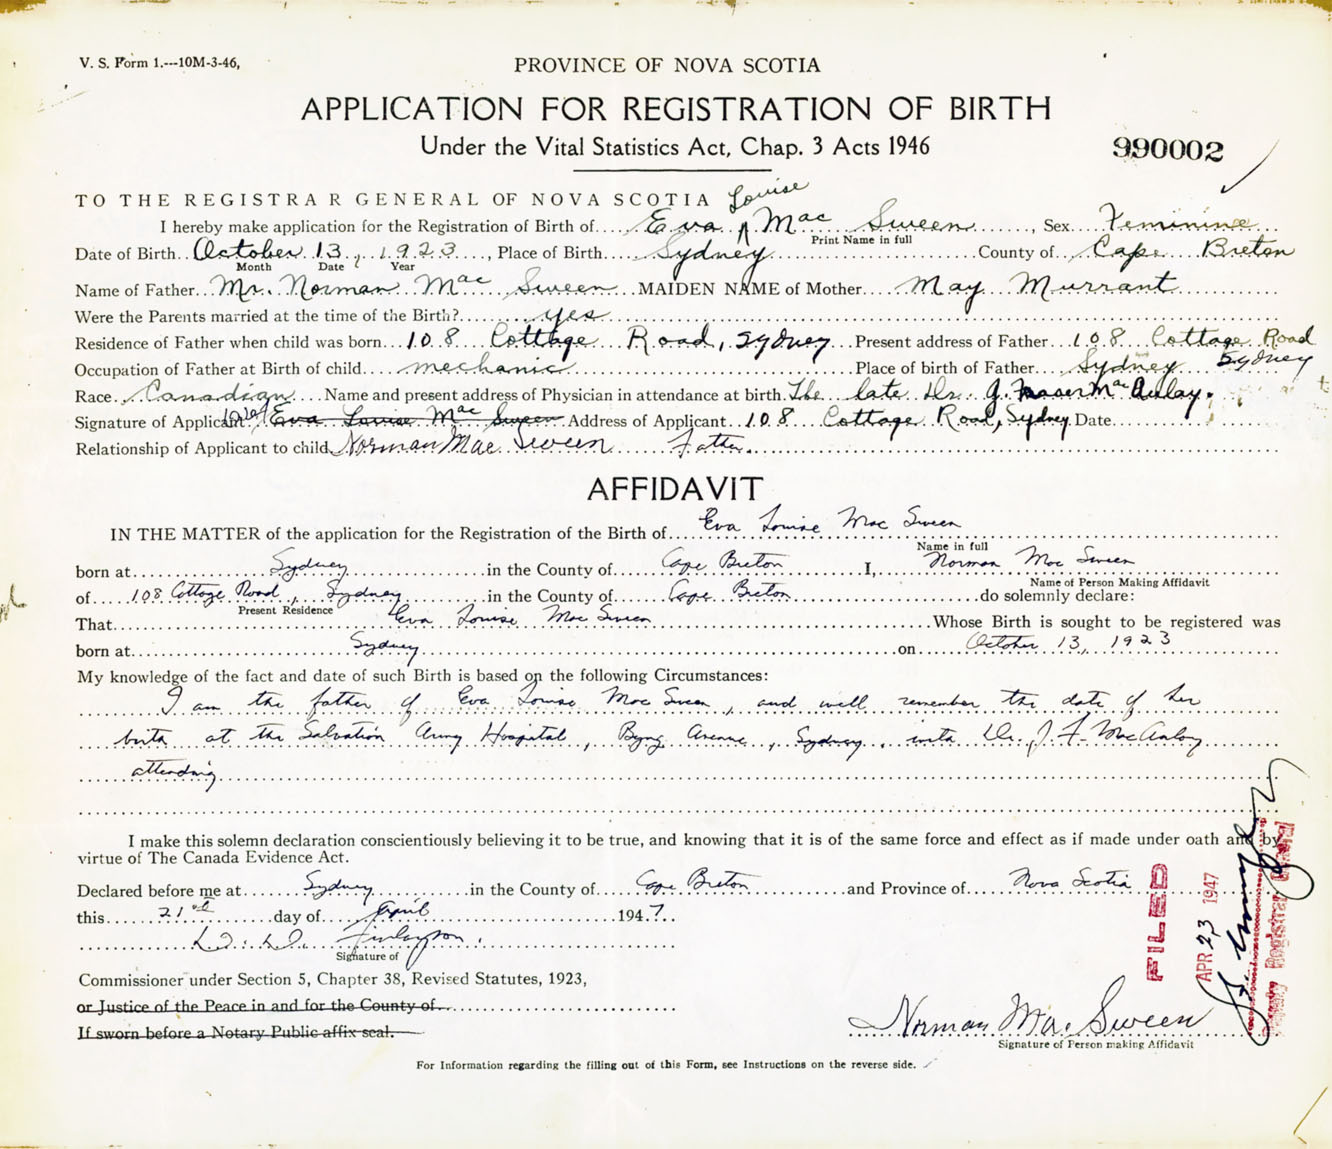 V. S. Form 1.---10M-3-46,
PROVINCE OF NOVA SCOTIA
APPLICATION FOR REGISTRATION OF BIRTH
Under the Vital Statistics Act, Chap. 3 Acts 1946
990002
TO THE REGISTRAR GENERAL OF NOVA SCOTIA
I hereby make application for the Registration of Birth of Eva Louise Mac Sween, Sex Feminine
Print Name in full
Date of Birth October 13, 1923, Place of Birth Sydney County of Cape Breton
Month Date Year
Name of Father Mr. Norman Mac Sween MAIDEN NAME of Mother May Murrant
Were the Parents married at the time of the Birth? yes
Residence of Father when child was born 108 Cottage Road, Sydney Present address of Father 108 Cottage Road Sydney
Occupation of Father at Birth of child mechanic Place of birth of Father Sydney
Race Canadian Name and present address of Physician in attendance at birth The late Dr. J. Fraser MacAulay.
Signature of Applicant Eva Louise Mac Sween Address of Applicant 108 Cottage Road, Sydney Date
Relationship of Applicant to child Norman Mac Sween Father.
AFFIDAVIT
IN THE MATTER of the application for the Registration of the Birth of Eva Louise Mac Sween
Name in full
born at Sydney in the County of Cape Breton I, Norman Mac Sween
Name of Person Making Affidavit
of 108 Cottage Road, Sydney in the County of Cape Breton do solemnly declare:
Present Residence
That Eva Louise Mac Sween Whose Birth is sought to be registered was
born at Sydney on October 13, 1923
My knowledge of the fact and date of such Birth is based on the following Circumstances:
I am the father of Eva Louise Mac Sween, and well remember the date of her
birth at the Salvation Army Hospital, Byng Avenue, Sydney, with Dr. J. F. MacAulay
attending
I make this solemn declaration conscientiously believing it to be true, and knowing that it is of the same force and effect as if made under oath and by
virtue of The Canada Evidence Act.
Declared before me at Sydney in the County of Cape Breton and Province of Nova Scotia
this 21st day of April 1947
D. D. Finlayson.
Signature of
Commissioner under Section 5, Chapter 38, Revised Statutes, 1923,
or Justice of the Peace in and for the County of
If sworn before a Notary Public affix seal.
Norman Mac Sween
Signature of Person making Affidavit
For Information regarding the filling out of this Form, see Instructions on the reverse side.
FILED
APR 23 1947
Deputy Registrar General